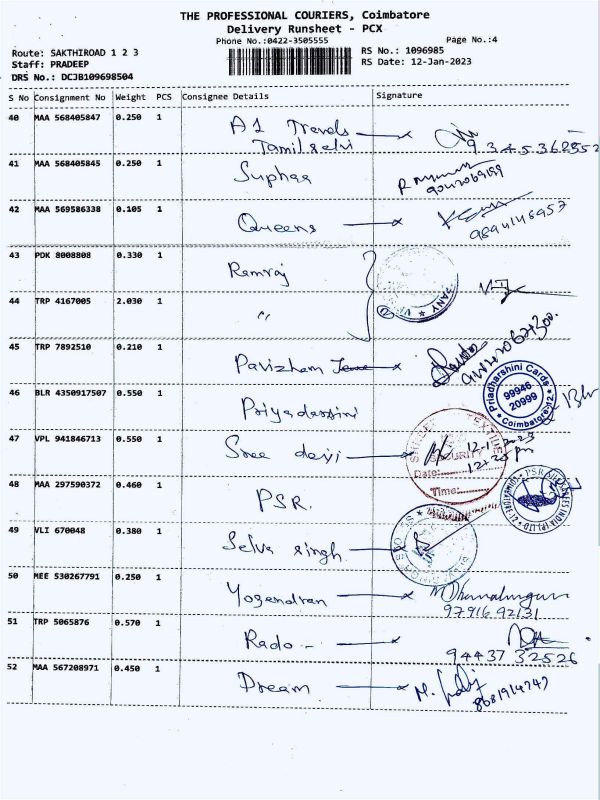 THE PROFESSIONAL COURIERS, Coimbatore
Delivery Runsheet - PCX
Phone No.:0422-3505555 Page No.:4
Route: SAKTHIROAD 1 2 3 RS No.: 1096985
Staff: PRADEEP RS Date: 12-Jan-2023
DRS No.: DCJB109698504
S No Consignment No Weight PCS Consignee Details Signature
40 MAA 568405847 0.250 1 A1 Travels
Tamilselvi
41 MAA 568405845 0.250 1 Suphaa
42 MAA 569586338 0.105 1 Queens
9894148957
43 PDK 8008808 0.330 1 Ramraj
44 TRP 4167005 2.030 1 "
45 TRP 7892510 0.210 1 Pavizham
46 BLR 4350917507 0.550 1 Priyadarsini
Priadharshini Cards
99946
20999
Coimbatore-12
47 VPL 941846713 0.550 1 Sree devi
SECURITY
Date: 12-1-2023
Time:
48 MAA 297590372 0.460 1 PSR
49 VLI 670048 0.380 1 Selva singh
50 MEE 530267791 0.250 1 Yogendran
97916 92131
51 TRP 5065876 0.570 1 Rado
94437 32526
52 MAA 567208971 0.450 1 Dream
8681914747